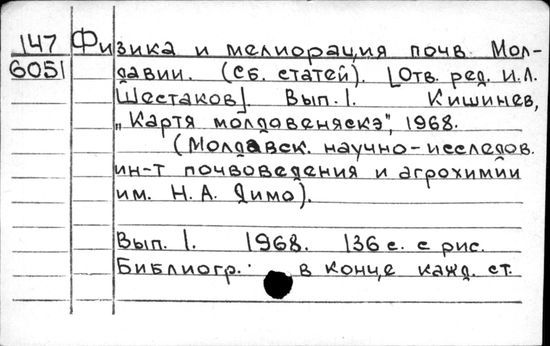 147 Физика и мелиорация почв Мол-
6051 давии. (Сб. статей). [Отв. ред. И.Л.
Шестаков]. Вып. 1. Кишинев,
„Картя молдовеняскэ", 1968.
(Молдавск. научно-исследов.
ин-т почвоведения и агрохимии
им. Н. А. Димо).
Вып. 1. 1968. 136 с. с рис.
Библиогр. в конце кажд. ст.